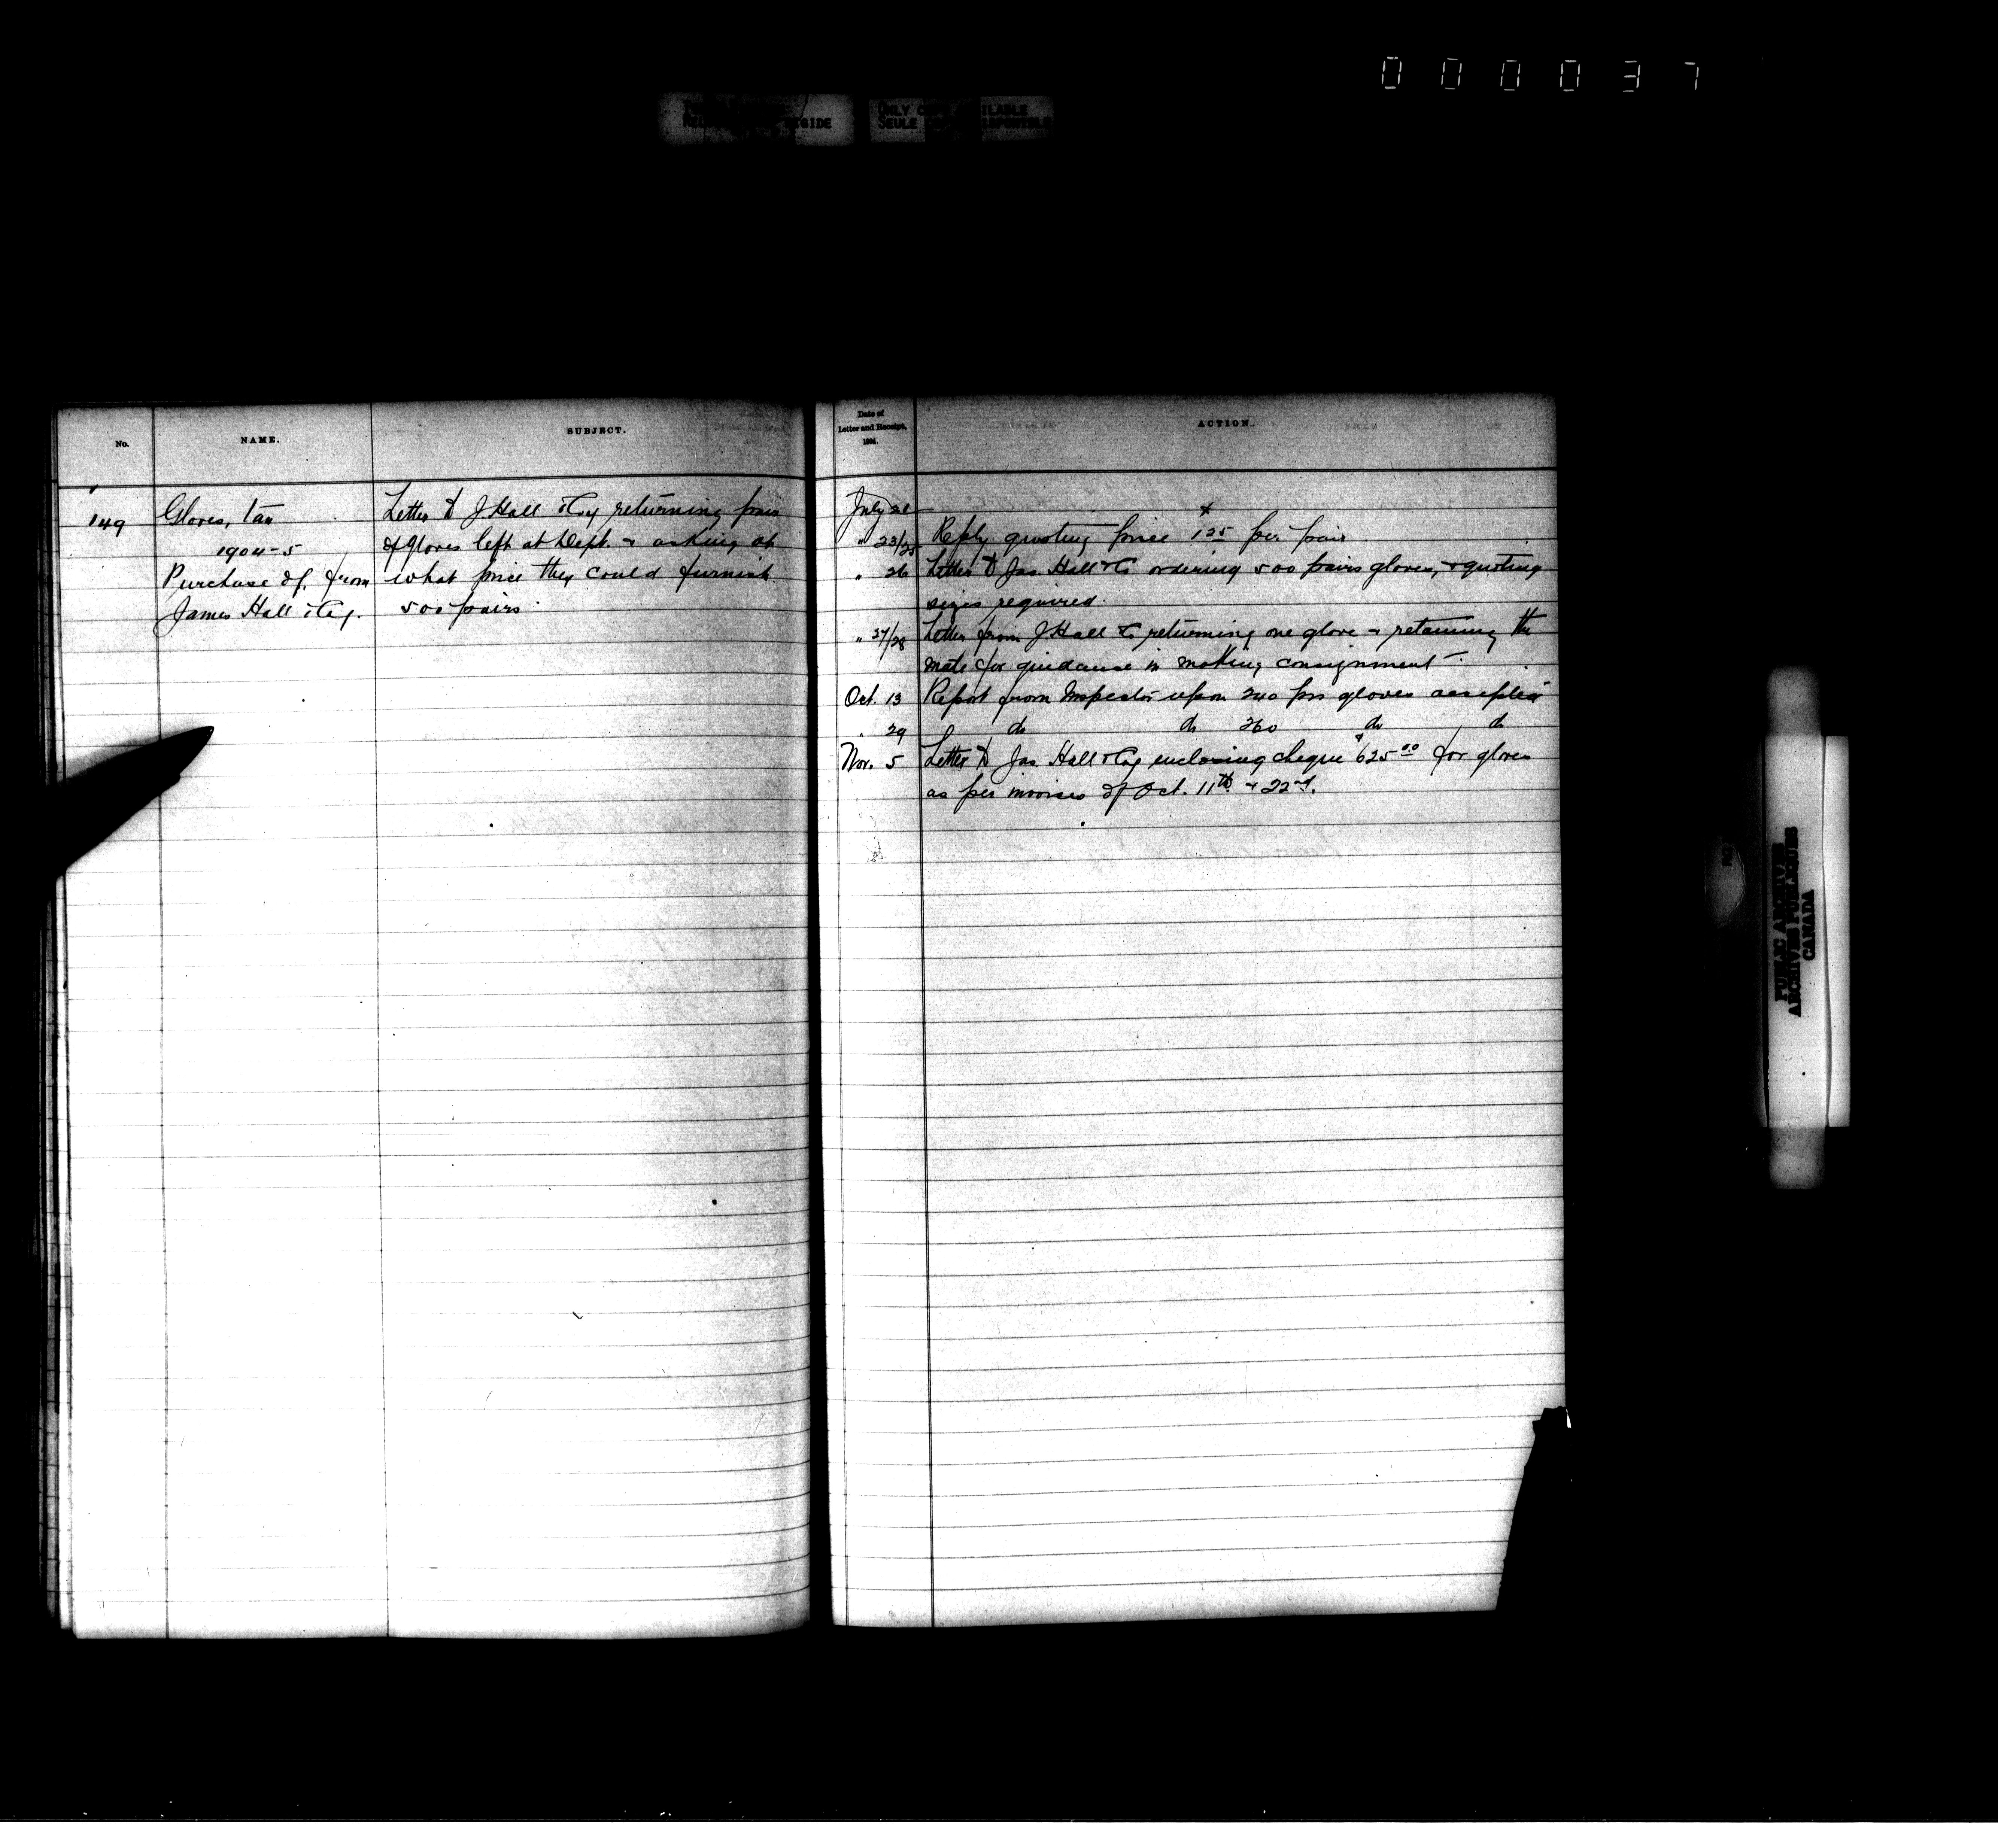 000037
ONLY COPY AVAILABLE
SEULE
No.
NAME.
SUBJECT.
149
Gloves, tan
1904-5
Purchase of, from
James Hall & Coy.
Letter to J. Hall & Coy returning pair
of gloves left at Dept. & asking at
what price they could furnish
500 pairs.
Date of
Letter and Receipt,
1904.
ACTION.
July
" 23/25 Reply quoting price $1.25 per pair
" 26 Letter to Jas Hall & Co ordering 500 pairs gloves, & quoting
sizes required.
" 27/28 Letter from J Hall & Co returning one glove & retaining the
mate for guidance in making consignment.
Oct. 13 Report from Inspector upon 240 prs gloves accepted
" 29 do do 260 do do
Nov. 5 Letter to Jas Hall & Coy enclosing cheque $625.00 for gloves
as per invoices of Oct. 11th & 22nd.
PUBLIC ARCHIVES
ARCHIVES PUBLIQUES
CANADA